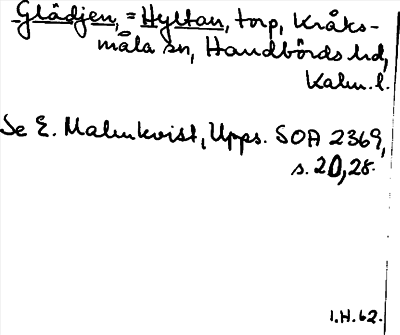 Glädjen, = Hyltan, torp, Kråks-
måla sn, Handbörds hd,
Kalm. l.
Se E. Malmkvist, Upps. SOA 2369,
s. 20, 28.
1.H.62.